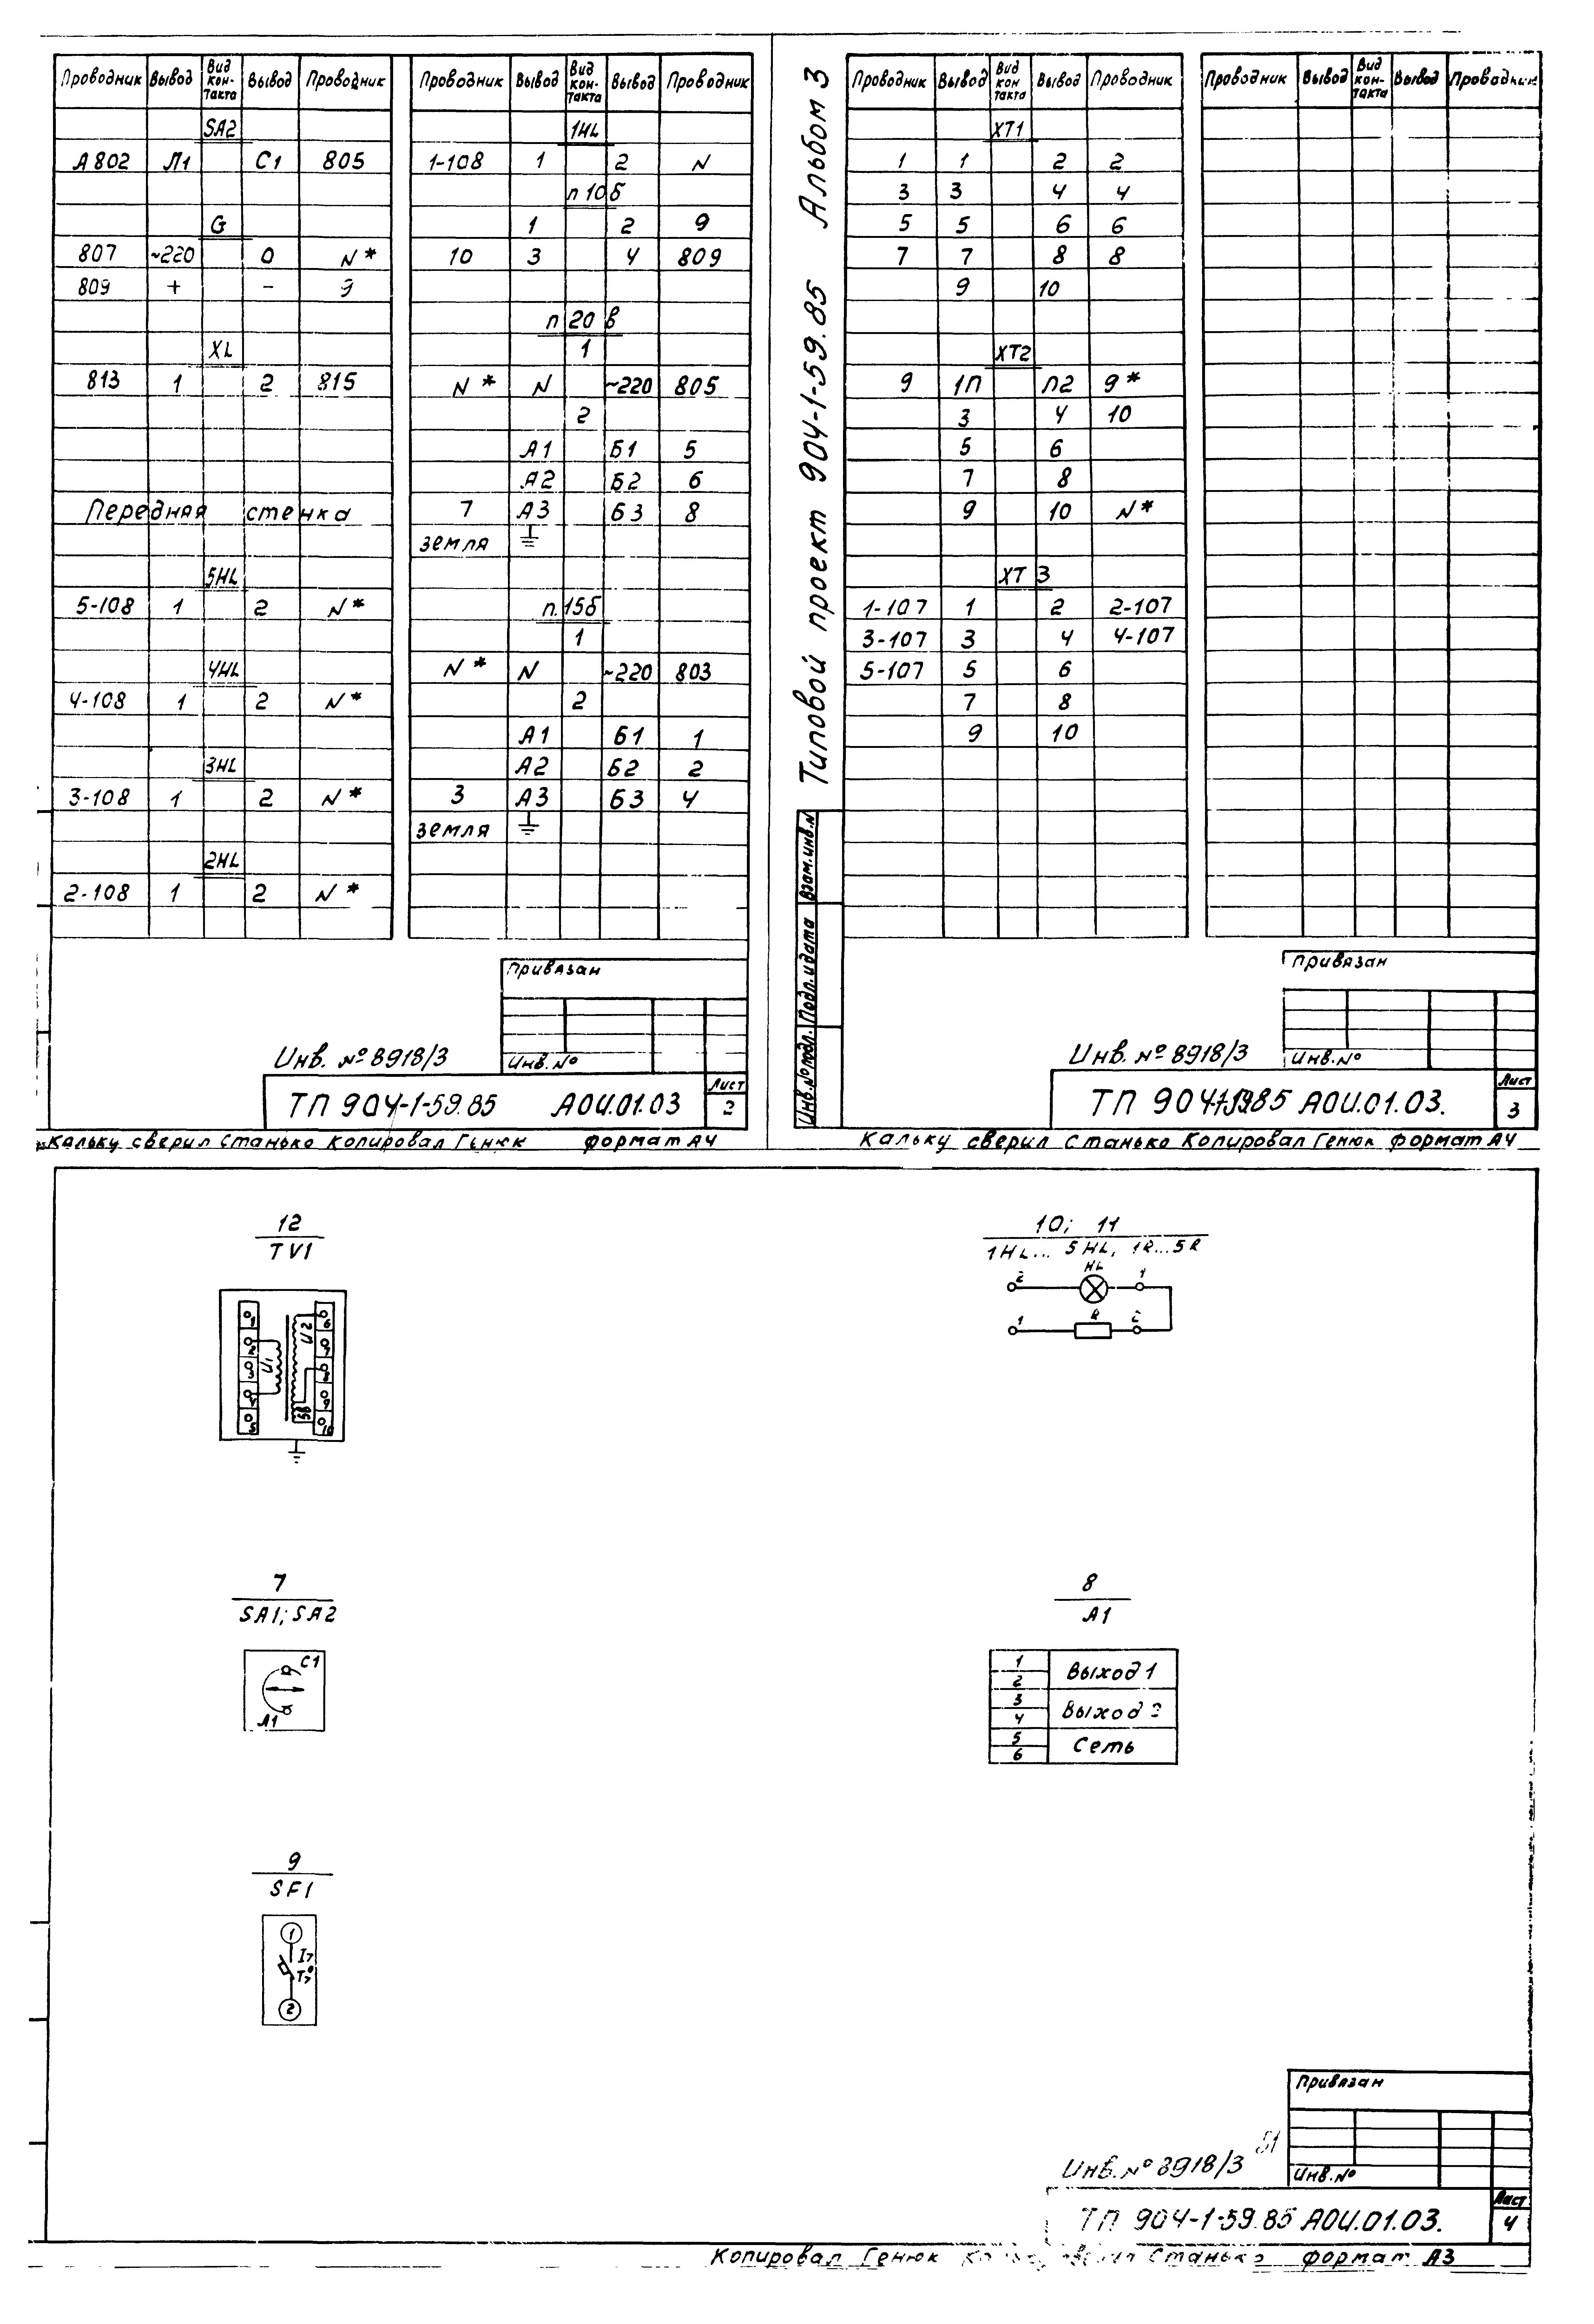 Проводник Вывод Вид кон-такта Вывод Проводник
SA2
А802 Л1 С1 805
G
807 ~220 0 N*
809 + - 9
XL
813 1 2 815
Передняя стенка
5HL
5-108 1 2 N*
4HL
4-108 1 2 N*
3HL
3-108 1 2 N*
2HL
2-108 1 2 N*
Проводник Вывод Вид кон-такта Вывод Проводник
1HL
1-108 1 2 N
п 10б
1 2 9
10 3 4 809
п 20 в
1
N* N ~220 805
2
А1 Б1 5
А2 Б2 6
7 А3 Б3 8
земля
п.15б
1
N* N ~220 803
2
А1 Б1 1
А2 Б2 2
3 А3 Б3 4
земля
Привязан
Инв.№
Инв. №8918/3
ТП 904-1-59.85 АОИ.01.03
Лист
2
Кальку сверил Станько Копировал Генюк формат А4
Типовой проект 904-1-59.85 Альбом 3
Взам.инв.N
Подп.и дата
Инв.№подл.
Проводник Вывод Вид кон такта Вывод Проводник
XT1
1 1 2 2
3 3 4 4
5 5 6 6
7 7 8 8
9 10
XT2
9 1П Л2 9*
3 4 10
5 6
7 8
9 10 N*
XT 3
1-107 1 2 2-107
3-107 3 4 4-107
5-107 5 6
7 8
9 10
Проводник Вывод Вид кон-такта Вывод Проводник
Привязан
Инв.№
Инв. №8918/3
ТП 904-1-59.85 АОИ.01.03.
Лист
3
Кальку сверил Станько Копировал Генюк формат А4
12
TV1
1
2
3
4
5
U1
U2
6
7
8
9
10
10; 11
1HL... 5HL, 1R...5R
2 HL 1
1 R 2
7
SA1; SA2
C1
А1
8
А1
1
2
Выход 1
3
4
Выход 2
5
6
Сеть
9
SF1
1
I>
T>°
2
Привязан
Инв.№
51
Инв.№8918/3
ТП 904-1-59.85 АОИ.01.03.
Лист
4
Копировал Генюк Станько формат А3